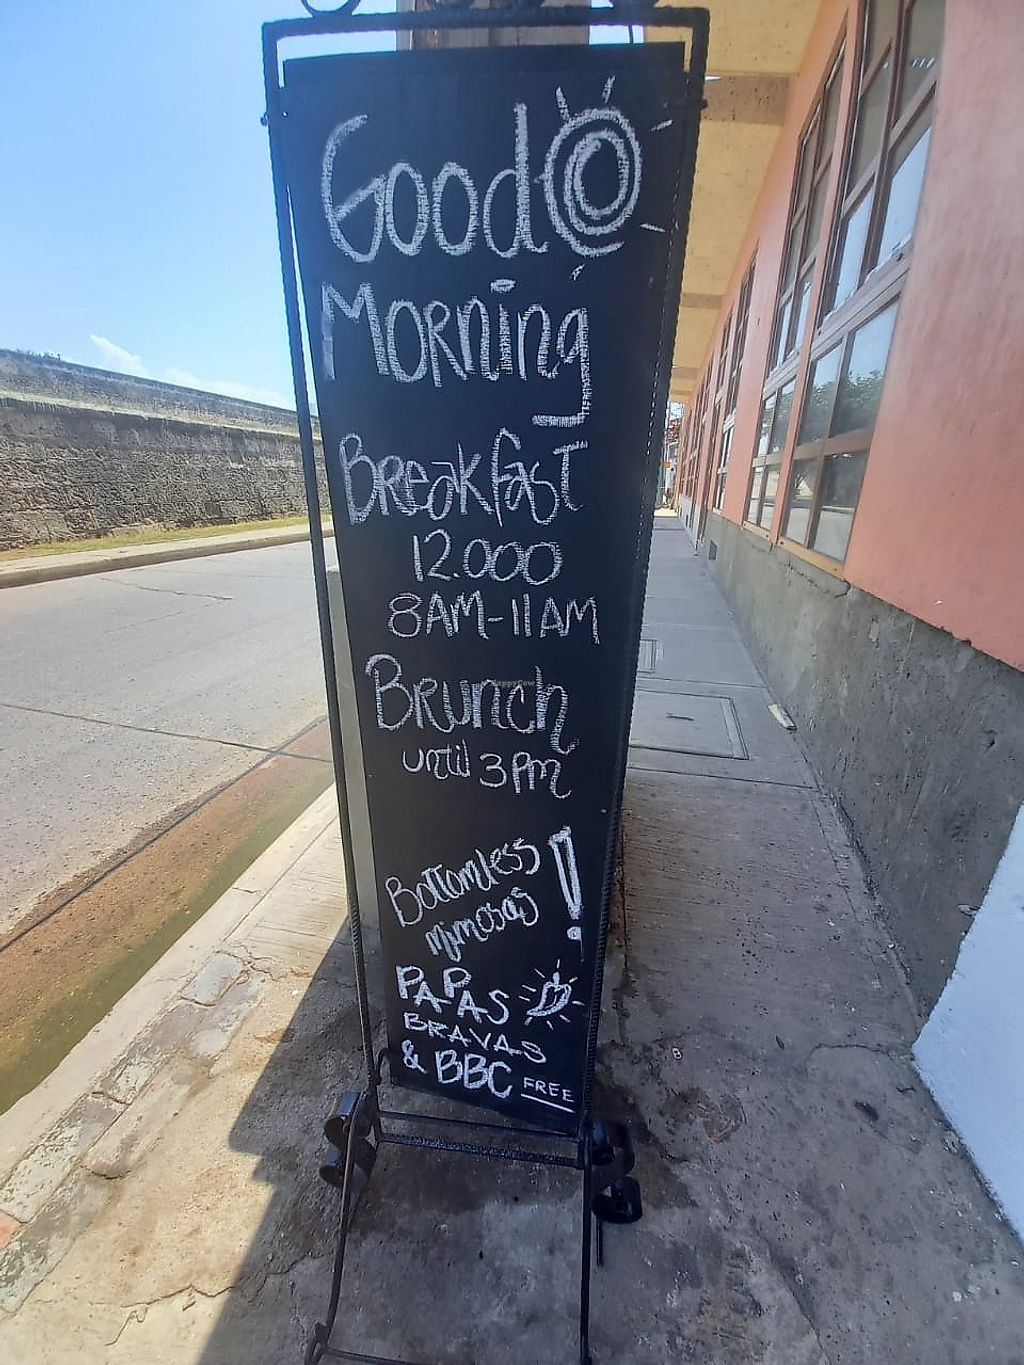 Good
Morning
Breakfast
12.000
8AM-11AM
Brunch
until 3PM
Bottomless
mimosas!
PAPAS
BRAVAS
& BBC FREE
HappyCow